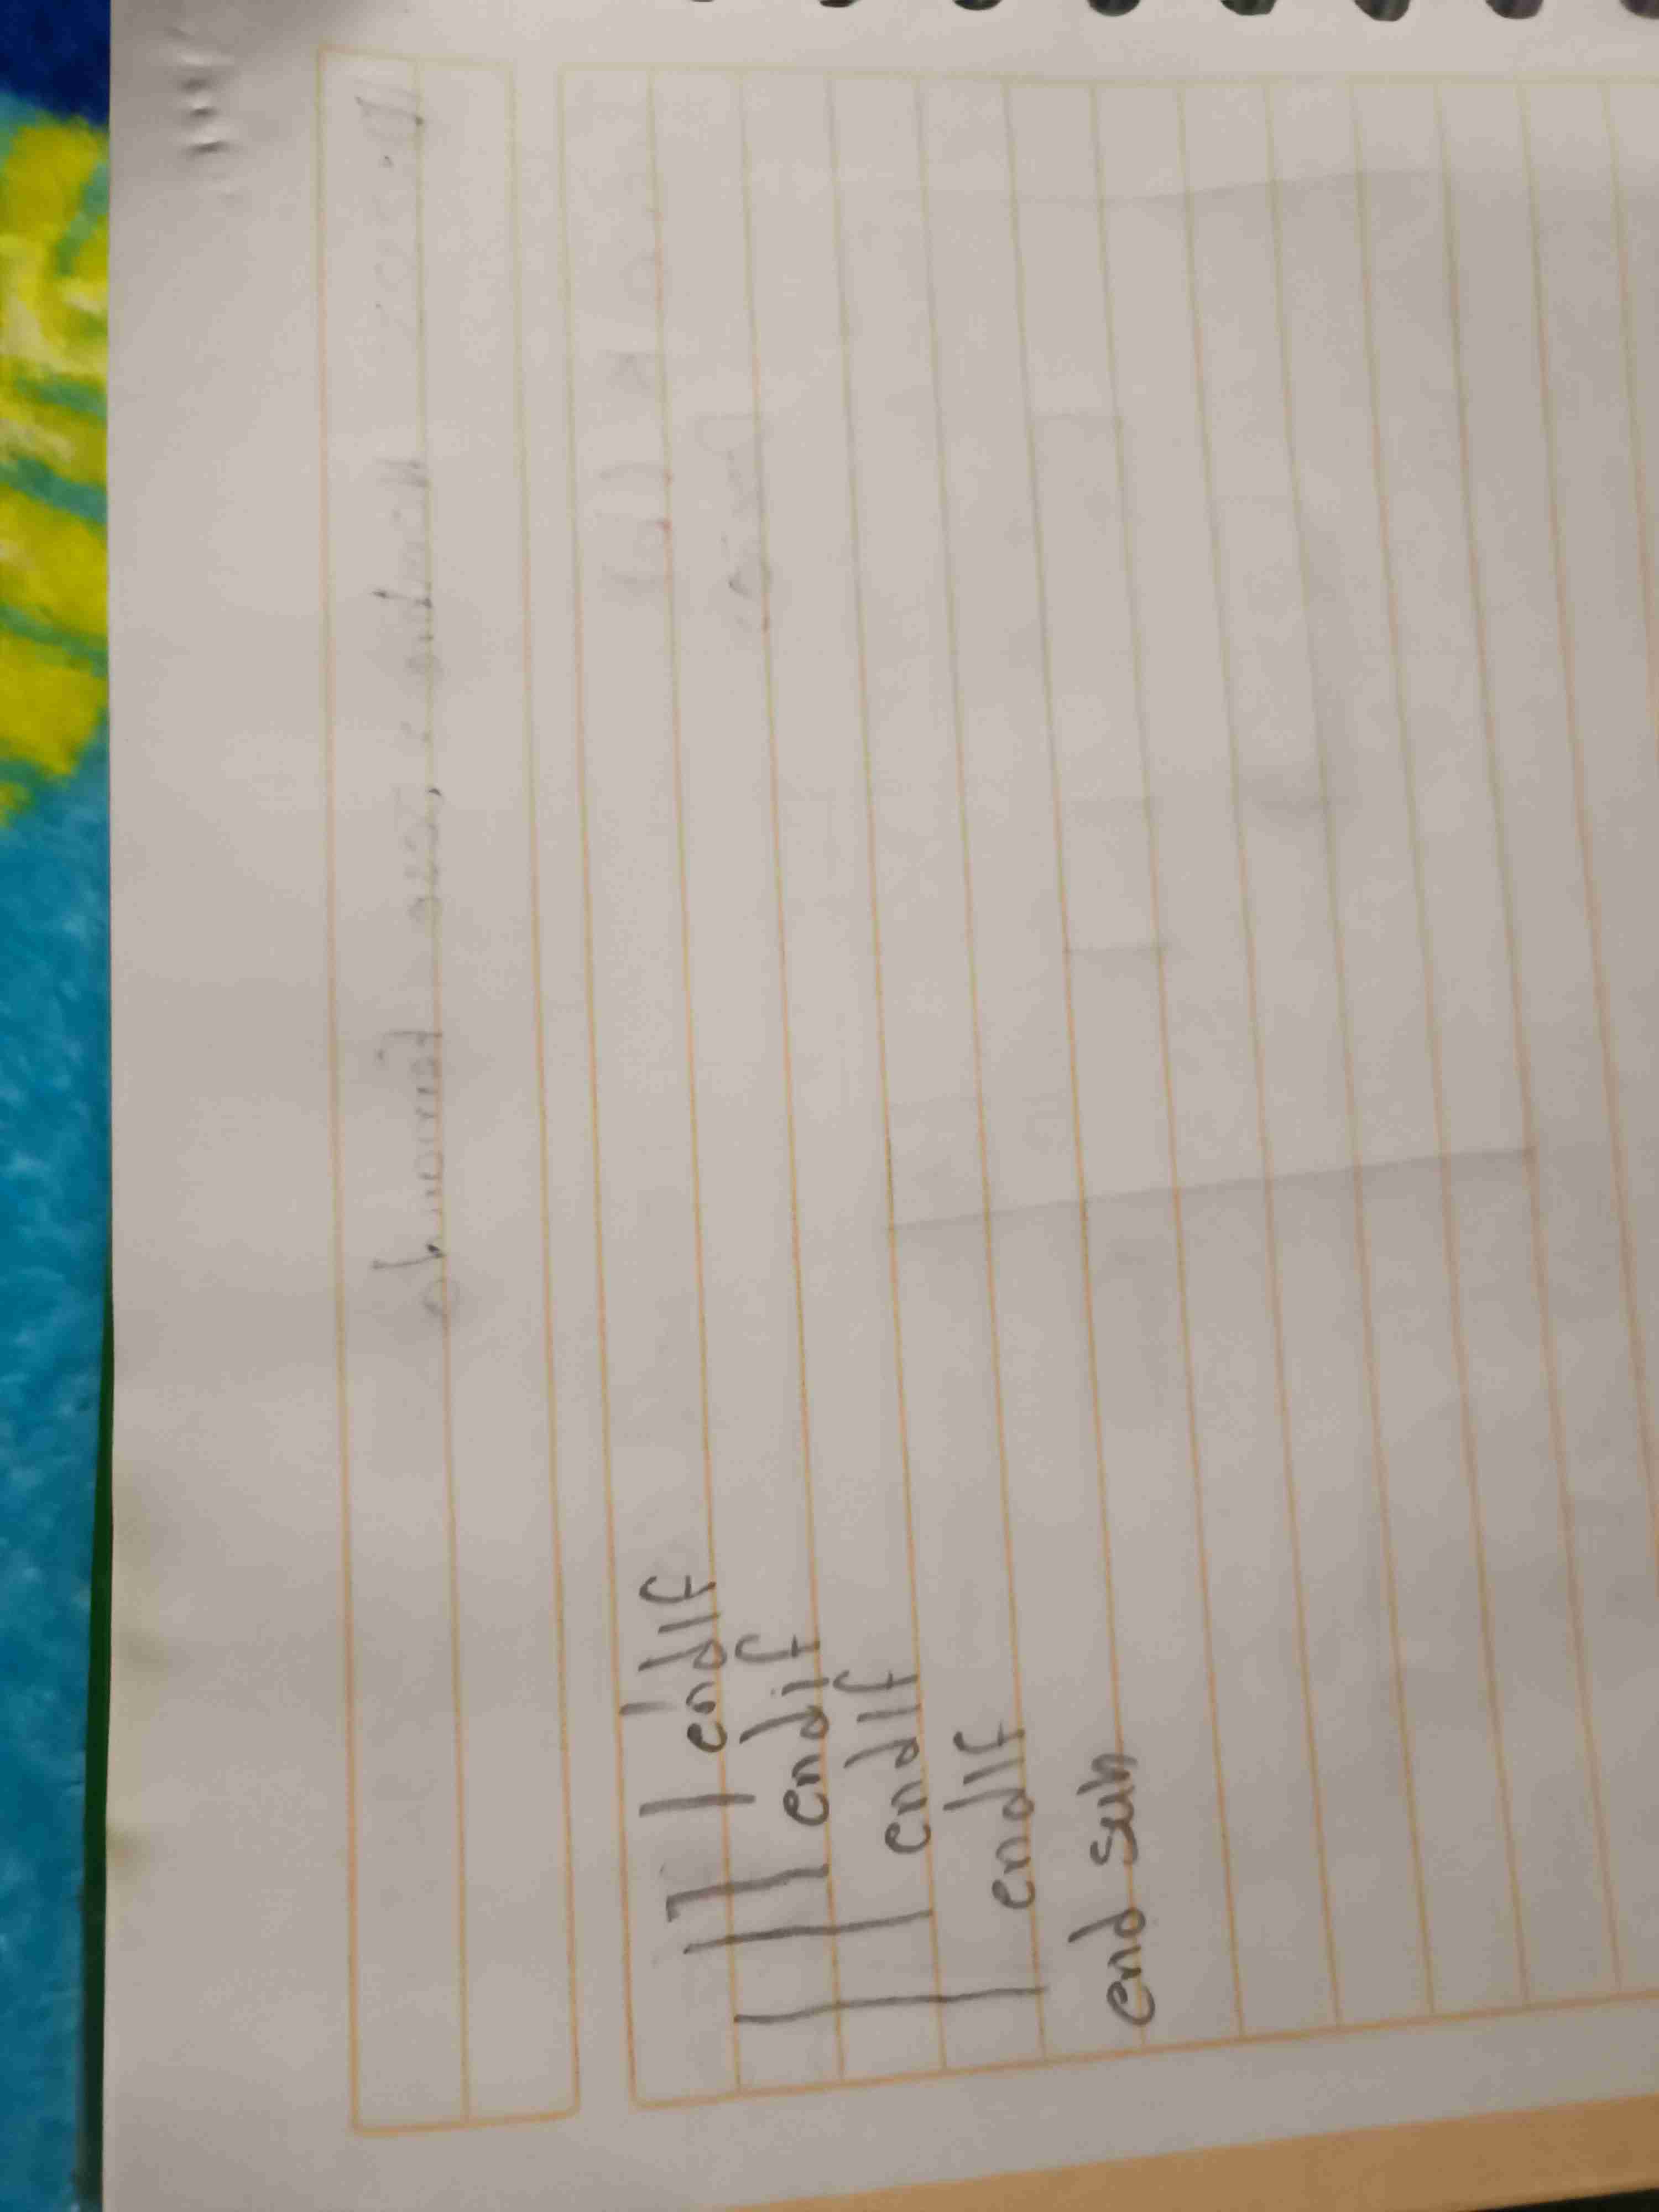 endIf
endif
endIf
endIf
end sub